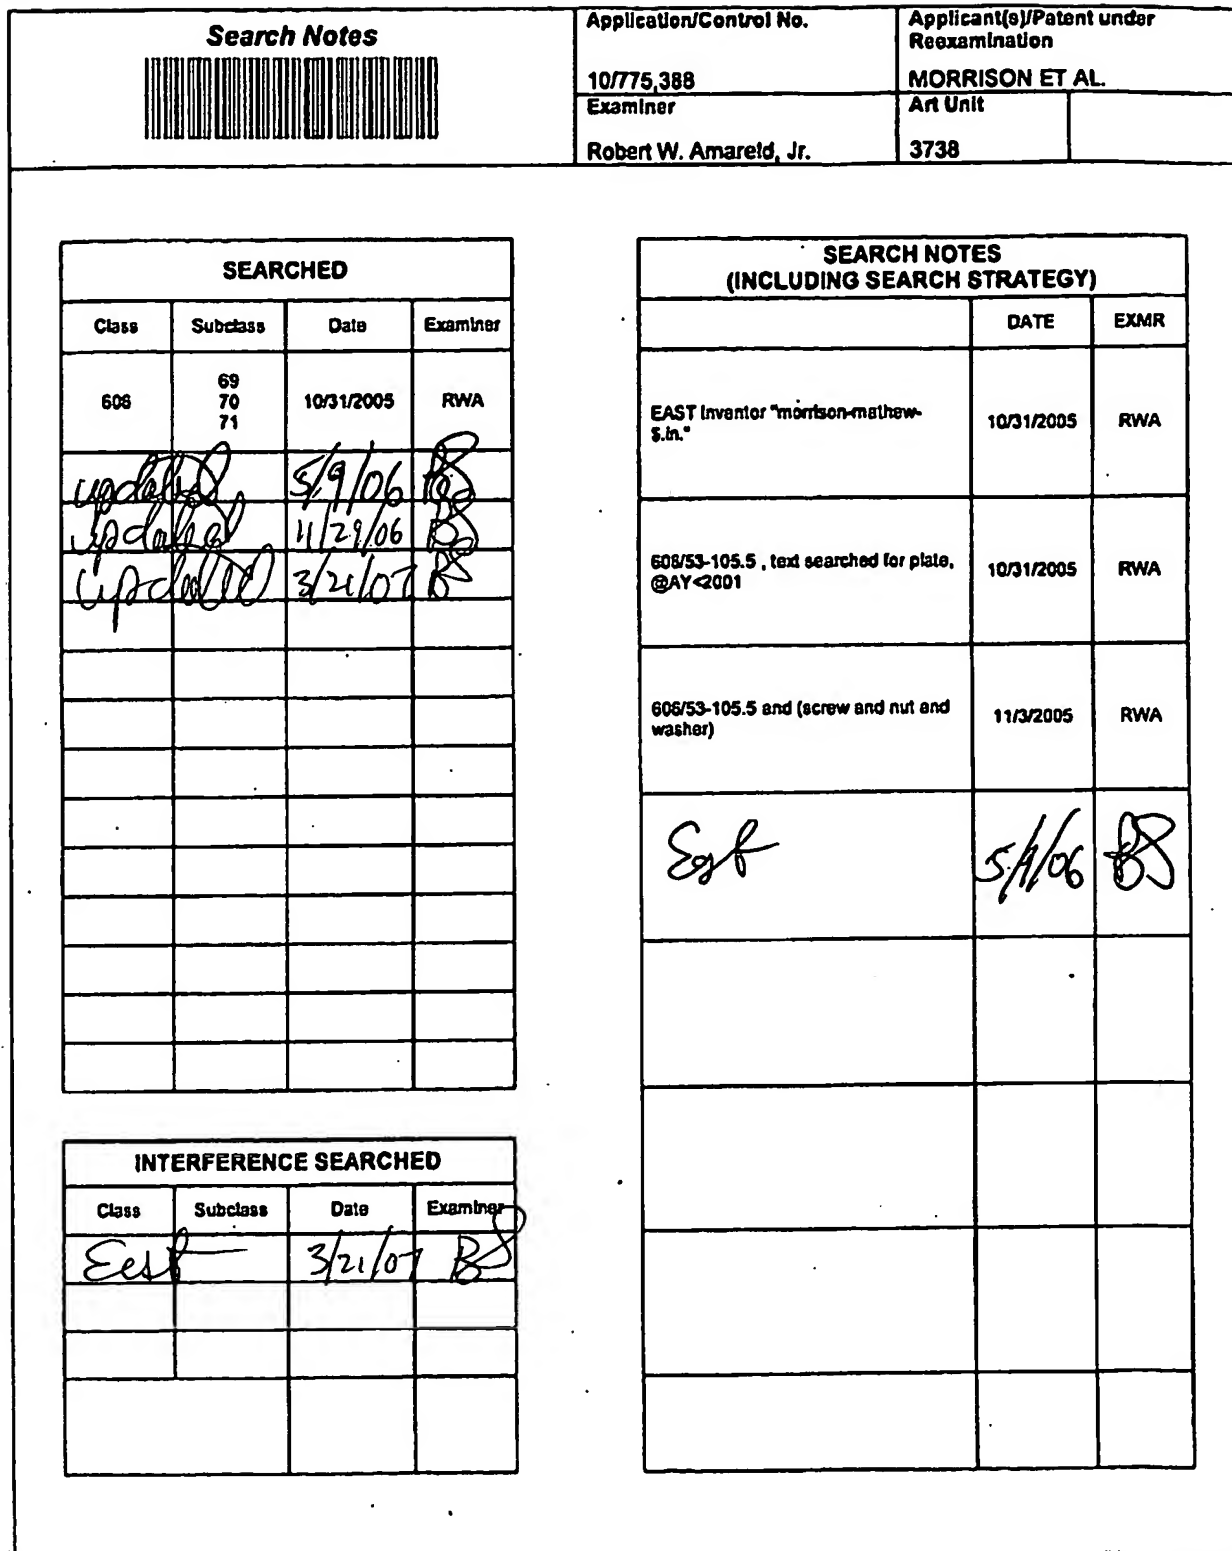 Search Notes
Application/Control No.
10/775,388
Applicant(s)/Patent under
Reexamination
MORRISON ET AL.
Examiner
Robert W. Amareld, Jr.
Art Unit
3738
SEARCHED
Class Subclass Date Examiner
606 69 10/31/2005 RWA
70
71
updated 5/9/06 BS
updated 11/29/06 BS
updated 3/21/07 BS
INTERFERENCE SEARCHED
Class Subclass Date Examiner
East 3/21/07 BS
SEARCH NOTES
(INCLUDING SEARCH STRATEGY)
DATE EXMR
EAST Inventor "morrison-mathew- 10/31/2005 RWA
$.in."
606/53-105.5 , text searched for plate, 10/31/2005 RWA
@AY<2001
606/53-105.5 and (screw and nut and 11/3/2005 RWA
washer)
East 5/9/06 BS